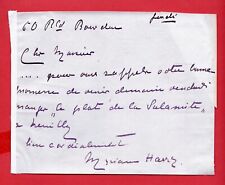 60 Bd
jeudi
Cher Monsieur
.... pour vous rappeler votre
promesse de venir demain vendredi
manger "le plat de la Palamite"
à Neuilly
bien cordialement
Myriam Harry